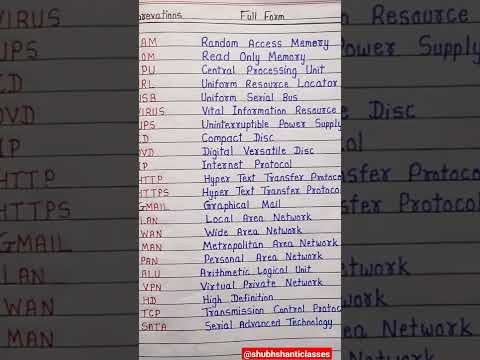 brevations Full Form
AM Random Access Memory
OM Read Only Memory
PU Central Processing Unit
RL Uniform Resource Locator
USB Uniform Serial Bus
VIRUS Vital Information Resource
UPS Uninterruptible Power Supply
CD Compact Disc
DVD Digital Versatile Disc
IP Internet Protocol
HTTP Hyper Text Transfer Protoco
HTTPS Hyper Text Transfer Protoco
GMAIL Graphical Mail
LAN Local Area Network
WAN Wide Area Network
MAN Metropolitan Area Network
PAN Personal Area Network
ALU Arithmetic Logical Unit
VPN Virtual Private Network
HD High Definition
TCP Transmission Control Protoc
SATA Serial Advanced Technology
@shubhshanticlasses
VIRUS
UPS
CD
DVD
IP
HTTP
HTTPS
GMAIL
LAN
WAN
MAN
Resource
Power Supply
Disc
sfer Protoco
sfer Protocol
etwork
work
a Network
Network